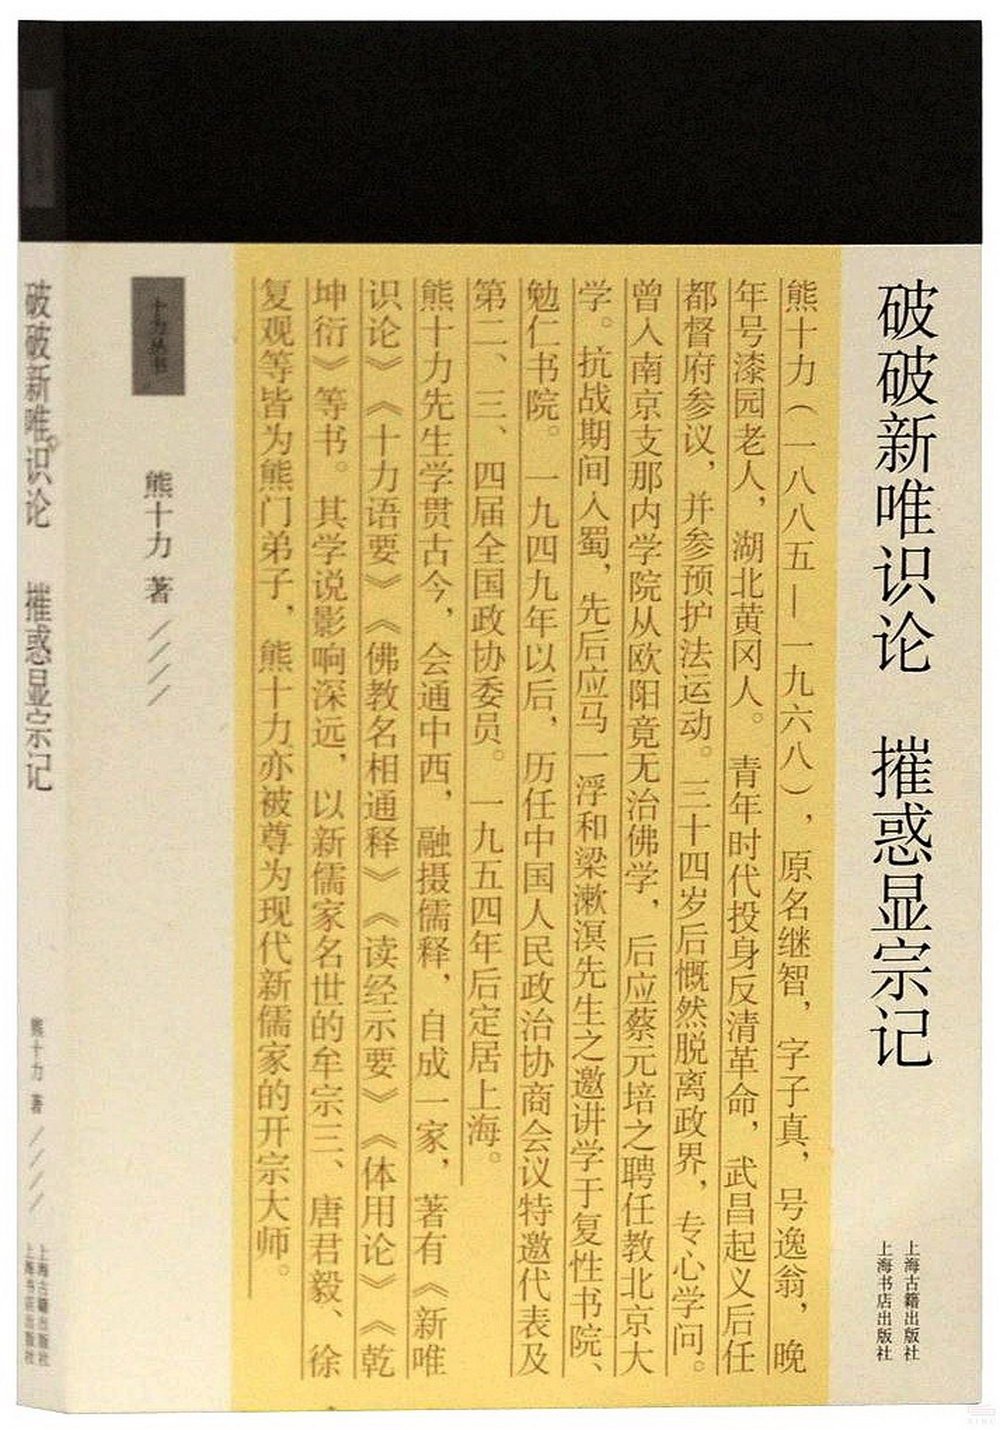 破破新唯识论 摧惑显宗记
上海古籍出版社
上海书店出版社
熊十力（一八八五—一九六八），原名继智，字子真，号逸翁，晚
年号漆园老人，湖北黄冈人。青年时代投身反清革命，武昌起义后任
都督府参议，并参预护法运动。三十四岁后慨然脱离政界，专心学问。
曾入南京支那内学院从欧阳竟无治佛学，后应蔡元培之聘任教北京大
学。抗战期间入蜀，先后应马一浮和梁漱溟先生之邀讲学于复性书院、
勉仁书院。一九四九年以后，历任中国人民政治协商会议特邀代表及
第二、三、四届全国政协委员。一九五四年后定居上海。
熊十力先生学贯古今，会通中西，融摄儒释，自成一家，著有《新唯
识论》《十力语要》《佛教名相通释》《读经示要》《体用论》《乾
坤衍》等书。其学说影响深远，以新儒家名世的牟宗三、唐君毅、徐
复观等皆为熊门弟子，熊十力亦被尊为现代新儒家的开宗大师。
十力丛书
熊十力 著////
破破新唯识论 摧惑显宗记
熊十力 著////
上海古籍出版社
上海书店出版社